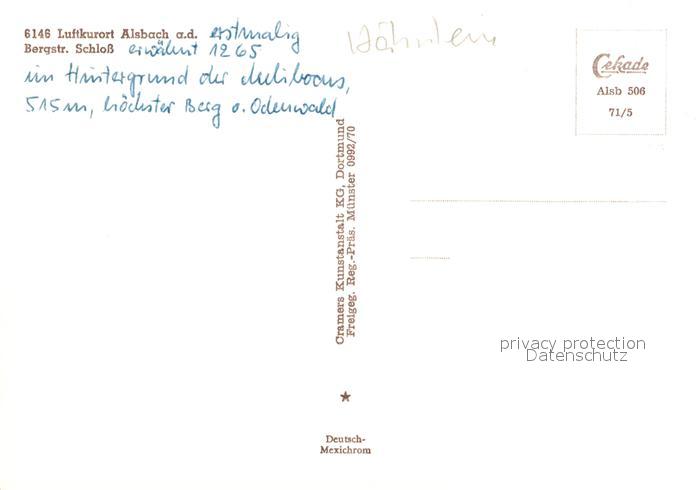 6146 Luftkurort Alsbach a.d. erstmalig
Bergstr. Schloß erwähnt 1265
im Hintergrund der Melibocus,
515m, höchster Berg o. Odenwald
Hähnlein
Cekade
Alsb 506
71/5
Cramers Kunstanstalt KG, Dortmund
Freigeg. Reg.-Präs. Münster 0992/70
privacy protection
Datenschutz
Deutsch-
Mexichrom